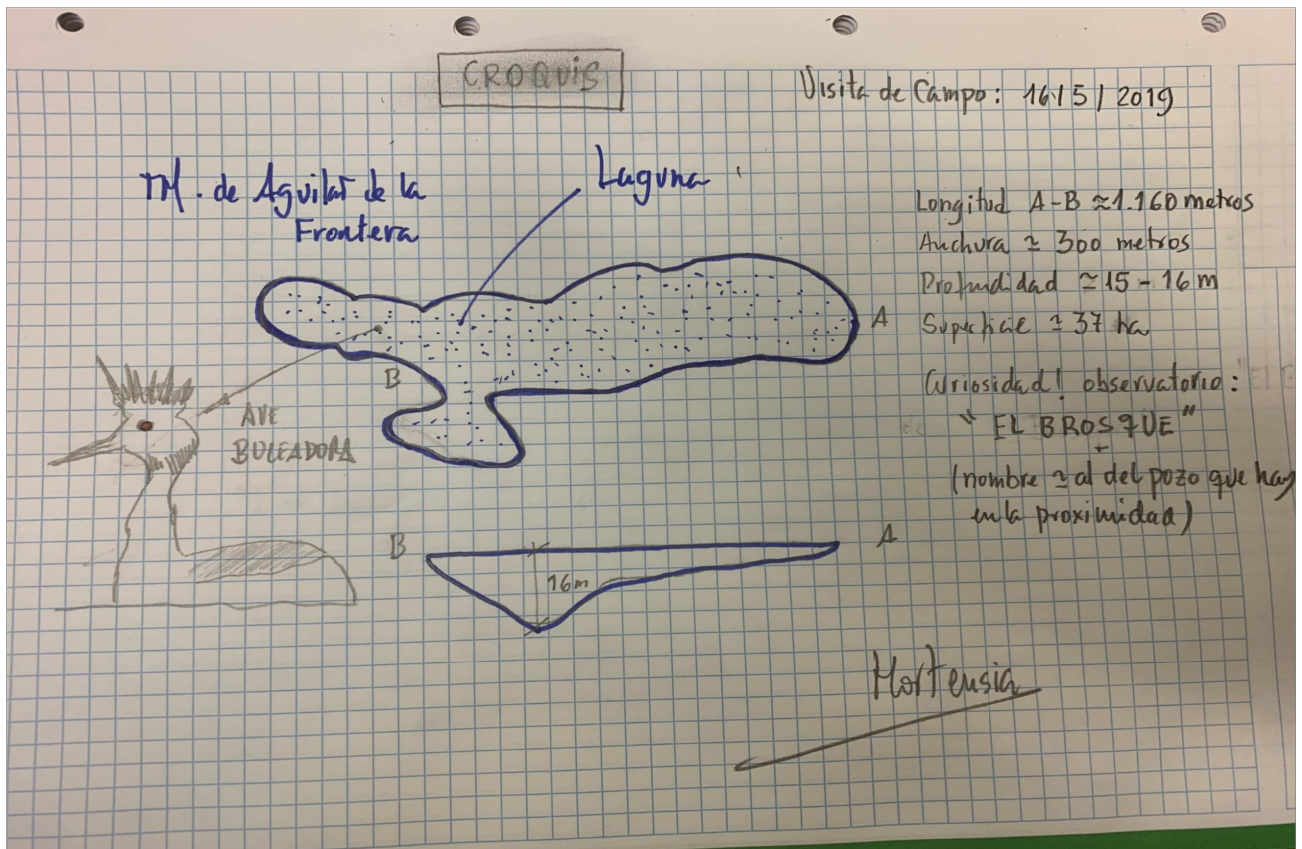 CROQUIS
Visita de Campo: 16/5/2019
TM. de Aguilar de la
Frontera
Laguna
Longitud A-B ≈1.160 metros
Anchura ≃ 300 metros
Profundidad ≃15 - 16 m
Superficie ≃ 37 ha
Curiosidad! observatorio:
" EL BROSQUE "
(nombre ≃ al del pozo que hay
en la proximidad)
A
B
AVE
BUCEADORA
B
A
16m
Hortensia